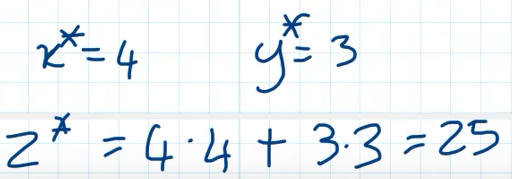 x* = 4 y* = 3
z* = 4·4 + 3·3 = 25